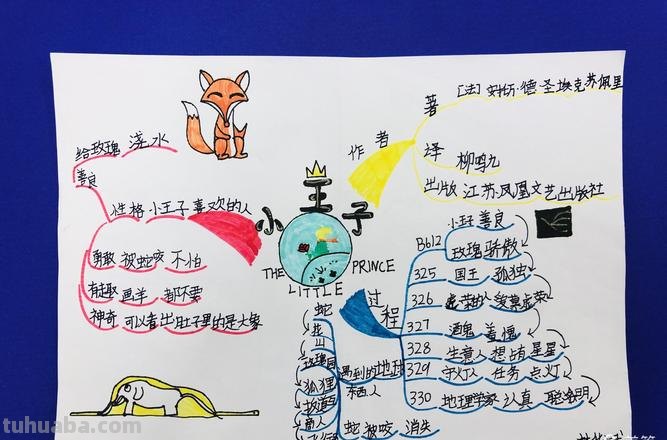 著 [法]安托·德·圣埃克苏佩里
作者
译 柳鸣九
出版 江苏凤凰文艺出版社
给玫瑰 浇水
善良
性格 小王子喜欢的人
勇敢 被蛇咬 不怕
有趣 画羊 都不要
神奇 可以看出肚子里的是大象
小王子
THE LITTLE PRINCE
过程
B612 小王子 善良
玫瑰 骄傲
325 国王 孤独
326 爱慕虚荣
327 酒鬼 羞愧
328 生意人 想占有星星
329 守灯人 任务 点灯
330 地理学家 认真
遇到的地球
东西人
蛇
花
山
玫瑰园
狐狸
扳道工
商人
蛇 被咬 消失
tuhuaba.com